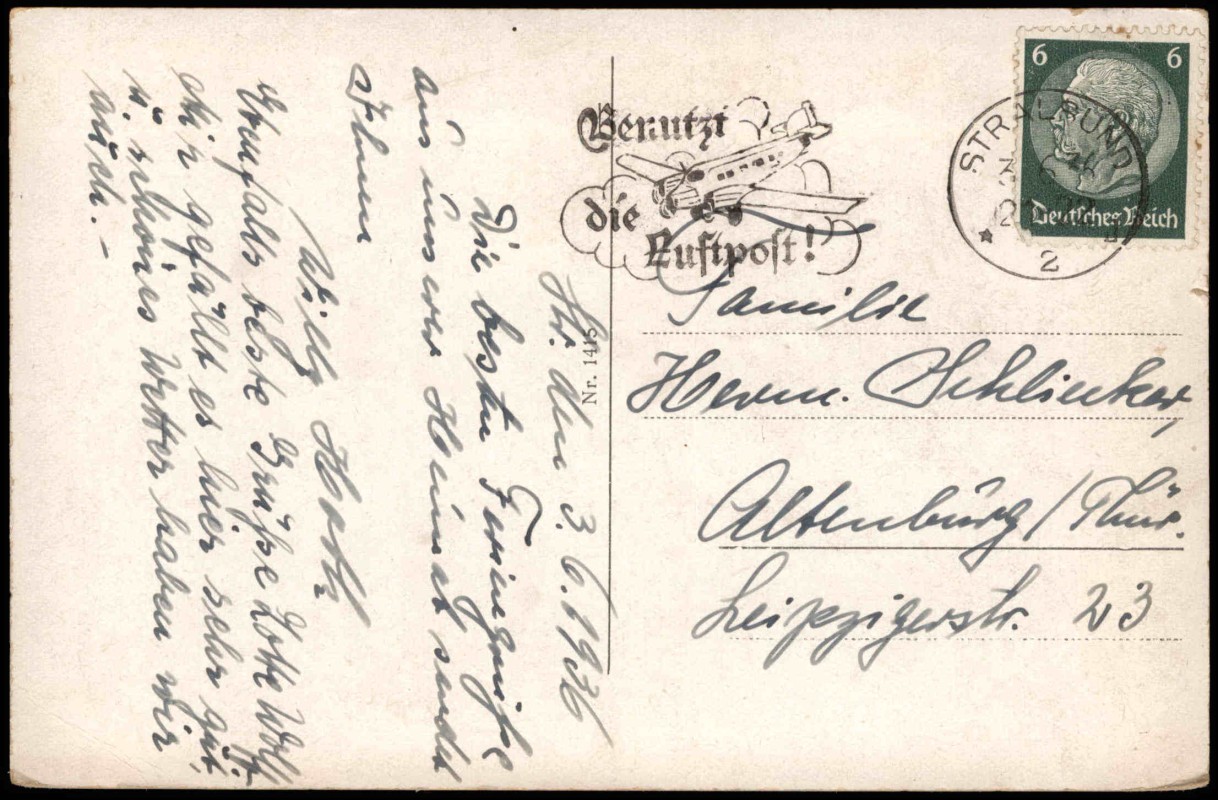 Benutzt
die
Luftpost!
6 6
Deutsches Reich
STRALSUND
2
Nr. 1415
Familie
Herm. Schlinker,
Altenburg / Thür.
Leipzigerstr. 23
Str. den 3. 6. 1936
Die besten Feriengrüße
aus unserer Heimat sendet
Ihnen
Willy
Ebenfalls beste Grüße Lotte Wolff
Mir gefällt es hier sehr gut,
u. schönes Wetter haben wir
auch. –